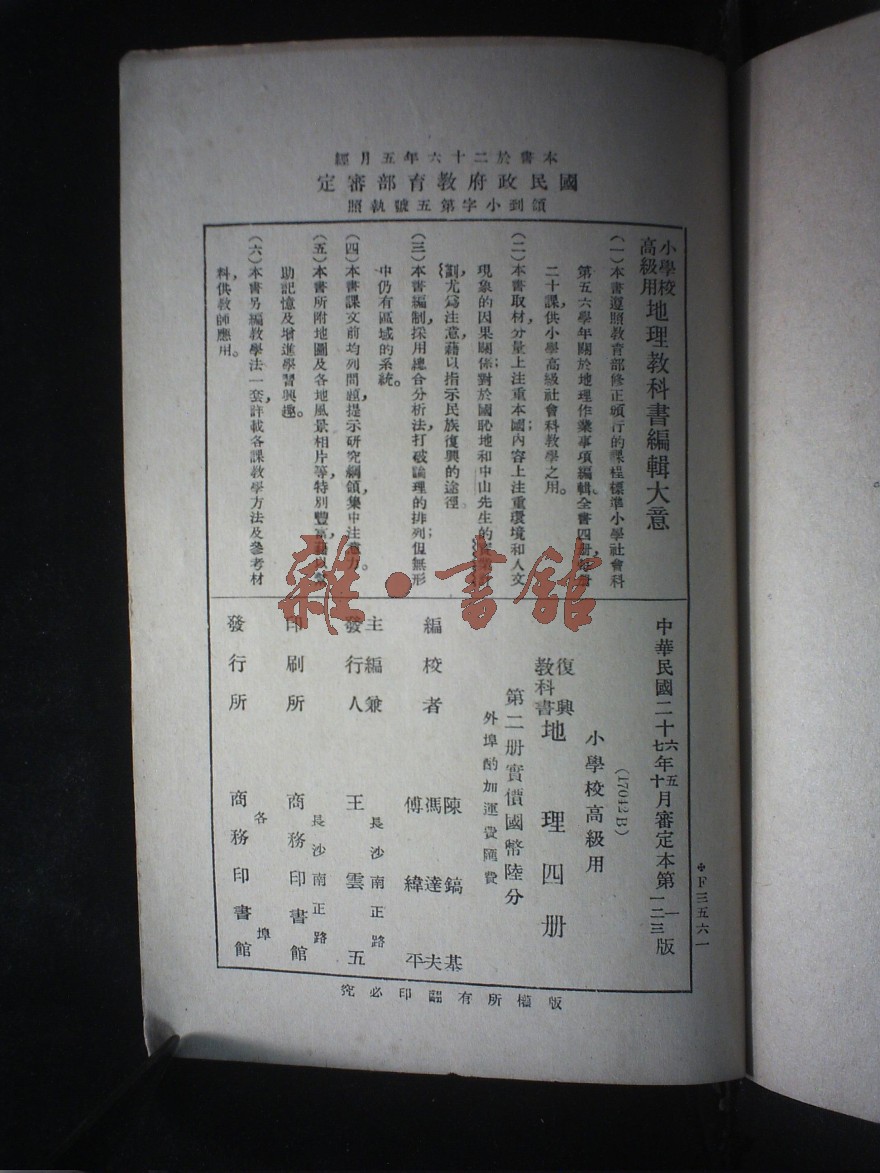 本書於二十六年五月經
國民政府教育部審定
領到小字第五號執照
小學校高級用地理教科書編輯大意
(一)本書遵照教育部修正頒行的課程標準小學社會科
第五六學年關於地理作業事項編輯,全書四册,每册
二十課,供小學高級社會科教學之用。
(二)本書取材分量上注重本國;內容上注重環境和人文
現象的因果關係;對於國恥地和中山先生的實業計
劃,尤爲注意,藉以指示民族復興的途徑
(三)本書編制,採用總合分析法,打破論理的排列;但無形
中仍有區域的系統。
(四)本書課文前均列問題,提示研究綱領,集中注意力。
(五)本書所附地圖及各地風景相片等,特別豐富,藉以幫
助記憶及增進學習興趣。
(六)本書另編教學法一套,詳載各課教學方法及參考材
料,供教師應用。
中華民國二十六年五月審定本第一版
七十二三
(17042B)
小學校高級用
復興教科書地理四册
第二册實價國幣陸分
外埠酌加運費匯費
編校者 陳鎬基 馮達夫 傅緯平
主編兼發行人 王雲五
長沙南正路
印刷所 商務印書館
長沙南正路
發行所 商務印書館
各埠
版權所有翻印必究
F三五六一
雜·書館